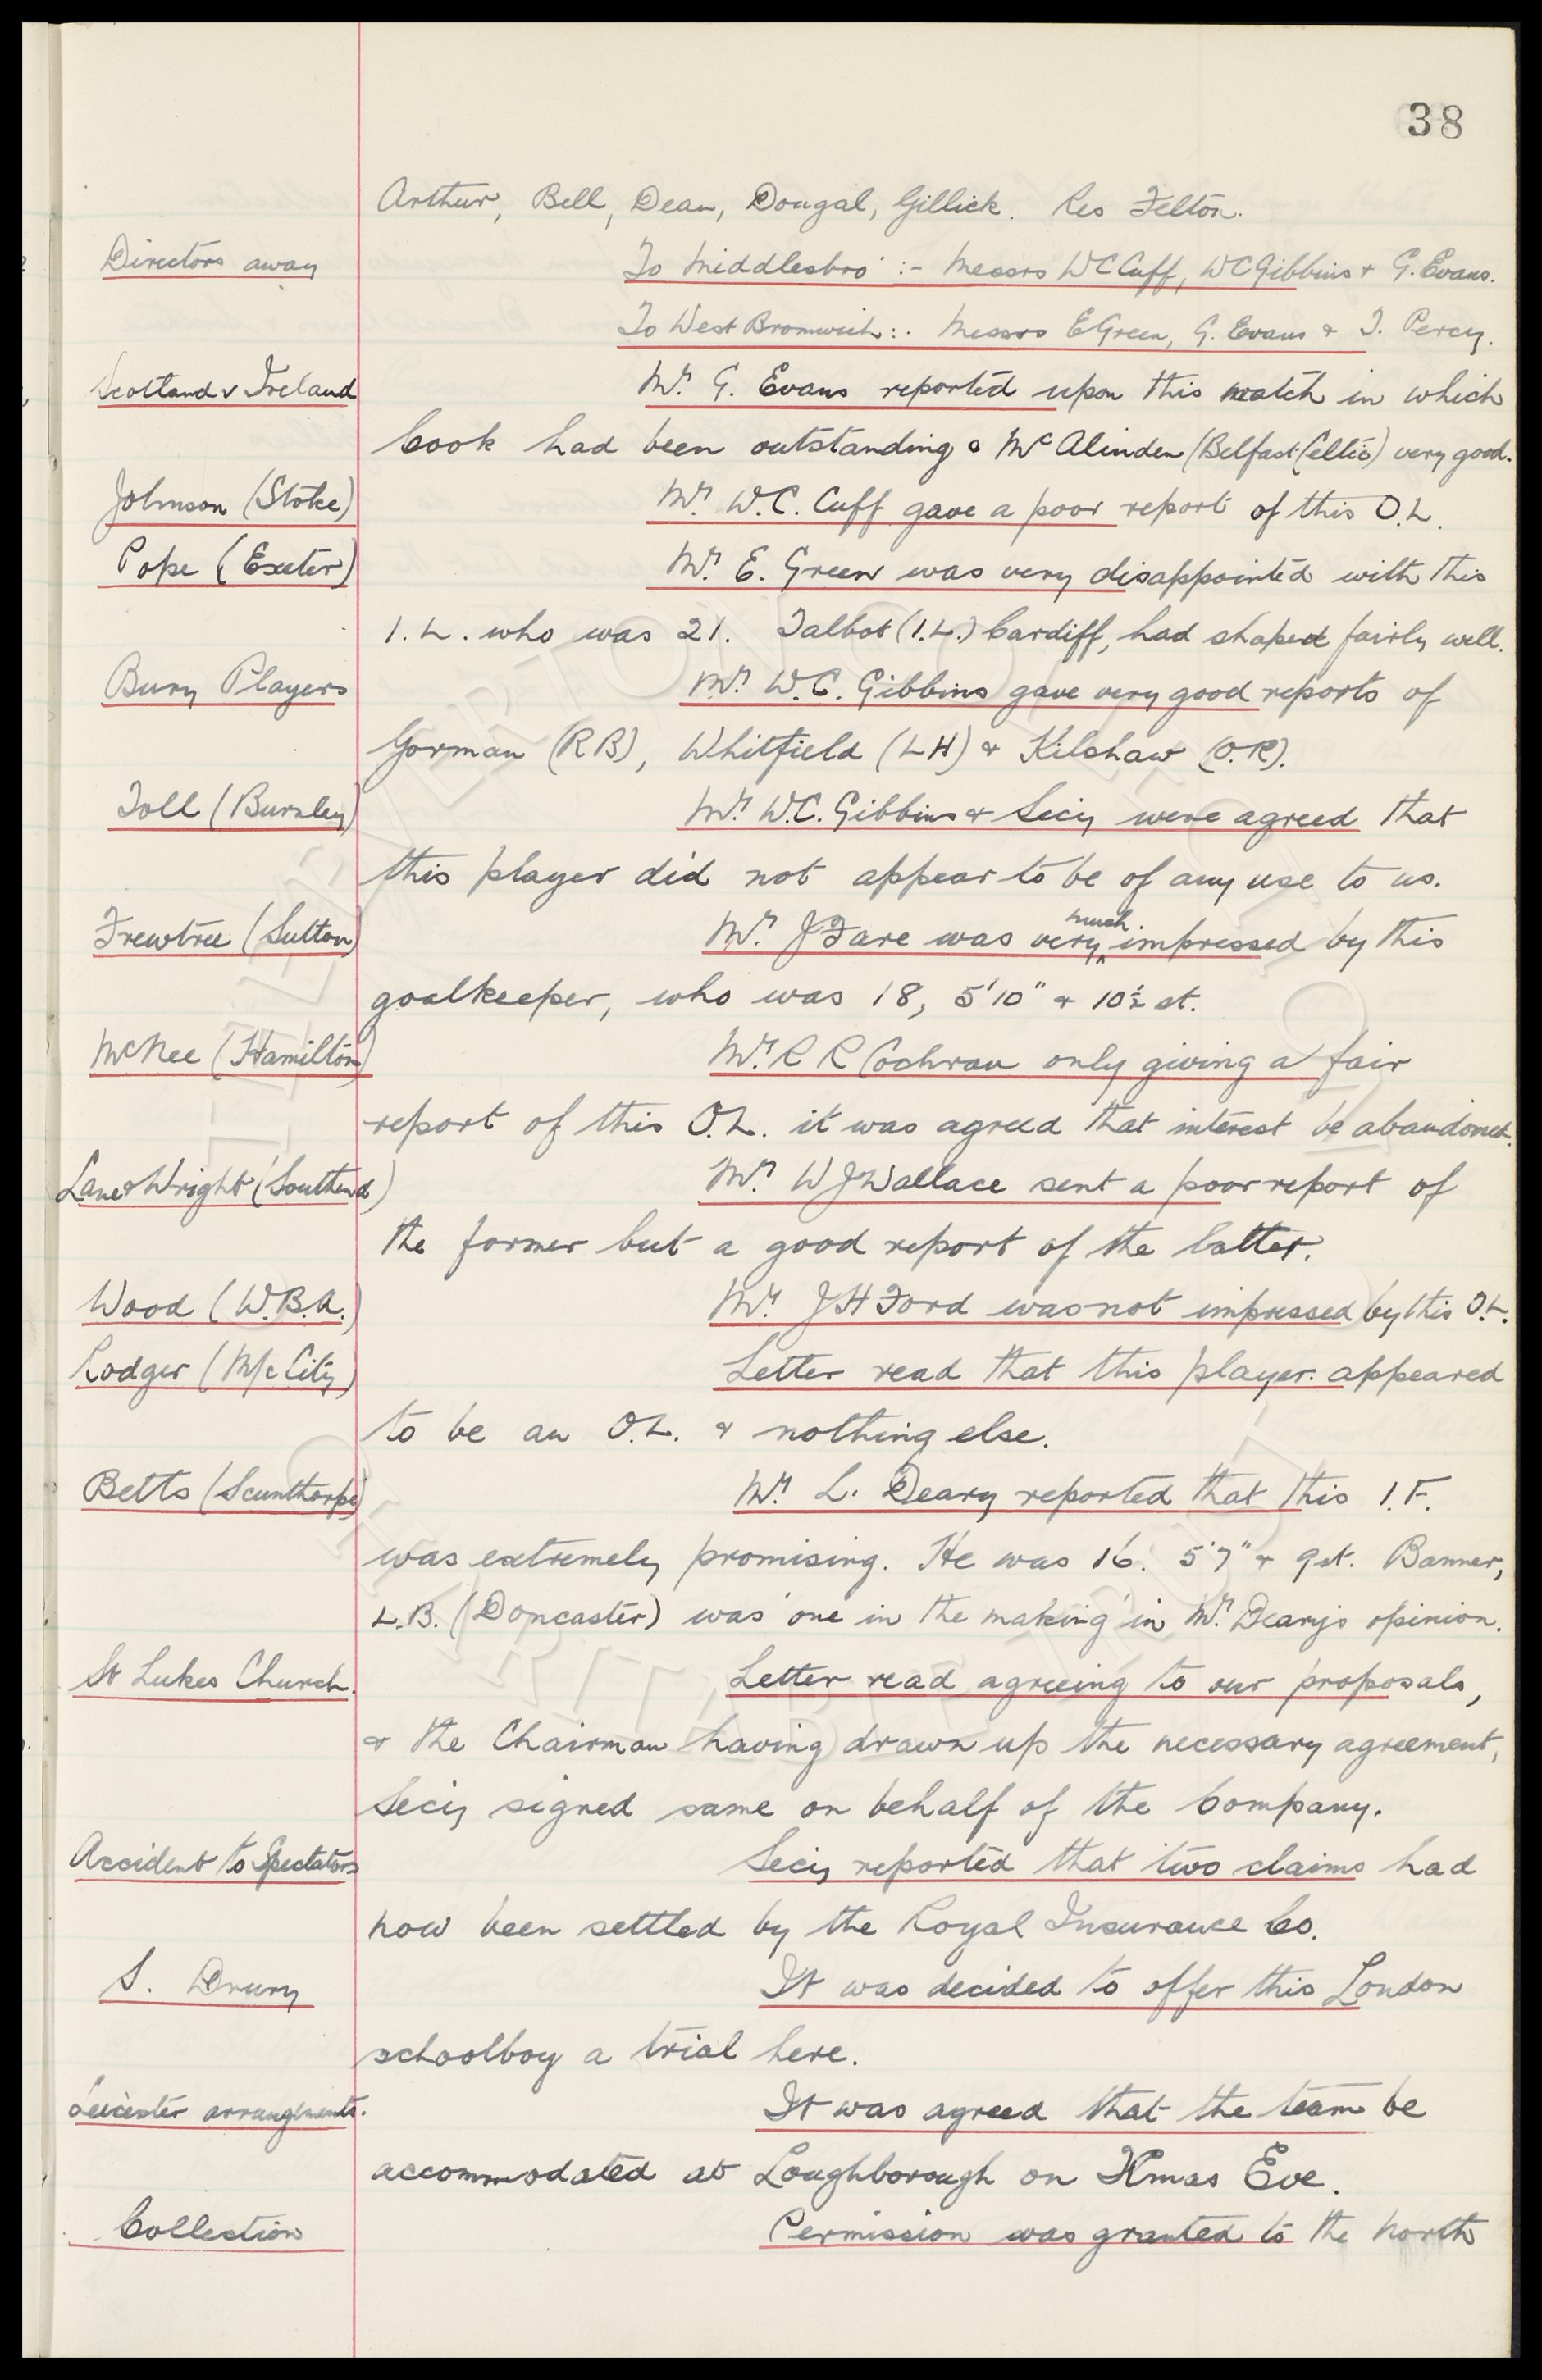 38
Arthur, Bell, Dean, Dougal, Gillick. Res Felton.
Directors away To Middlesbro' :- Messrs WCCuff, WCGibbins & G. Evans.
To West Bromwich :. Messrs EGreen, G. Evans & T. Percy.
Scotland v Ireland Mr. G. Evans reported upon this match in which
Cook had been outstanding & McAlinden (Belfast Celtic) very good.
Johnson (Stoke) Mr. W.C. Cuff gave a poor report of this O.L.
Pope (Exeter) Mr. E. Green was very disappointed with this
I.L. who was 21. Talbot (I.L.) Cardiff, had shaped fairly well.
Bury Players Mr. W.C. Gibbins gave very good reports of
Gorman (RB), Whitfield (LH) & Kilshaw (O.R).
Toll (Burnley) Mr. W.C. Gibbins & Secy were agreed that
this player did not appear to be of any use to us.
Frewtree (Sutton) Mr. J Fare was very much impressed by this
goalkeeper, who was 18, 5'10" & 10½ st.
McNee (Hamilton) Mr. R R Cochran only giving a fair
report of this O.L. it was agreed that interest be abandoned.
Lane & Wright (Southend) Mr. WJWallace sent a poor report of
the former but a good report of the latter.
Wood (W.B.A.) Mr. JH Ford was not impressed by this O.L.
Rodger (M/c City) Letter read that this player appeared
to be an O.L. & nothing else.
Betts (Scunthorpe) Mr. L. Deary reported that this I.F.
was extremely promising. He was 16. 5'7" & 9st. Banner,
L.B. (Doncaster) was 'one in the making' in Mr. Deary's opinion.
St Lukes Church. Letter read agreeing to our proposals,
& the Chairman having drawn up the necessary agreement,
Secy signed same on behalf of the Company.
Accident to Spectators Secy reported that two claims had
now been settled by the Royal Insurance Co.
S. Drury It was decided to offer this London
schoolboy a trial here.
Leicester arrangments. It was agreed that the team be
accommodated at Loughborough on Xmas Eve.
Collection Permission was granted to the North